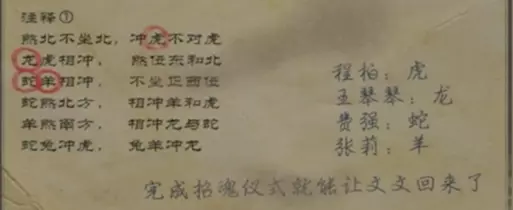 注释①
煞北不坐北，冲虎不对虎
龙虎相冲，煞位东和北
蛇羊相冲，不坐正西位
蛇煞北方，相冲羊和虎
羊煞南方，相冲龙与蛇
蛇兔冲虎，兔羊冲龙
程柏：虎
王琴琴：龙
费强：蛇
张莉：羊
完成招魂仪式就能让文文回来了